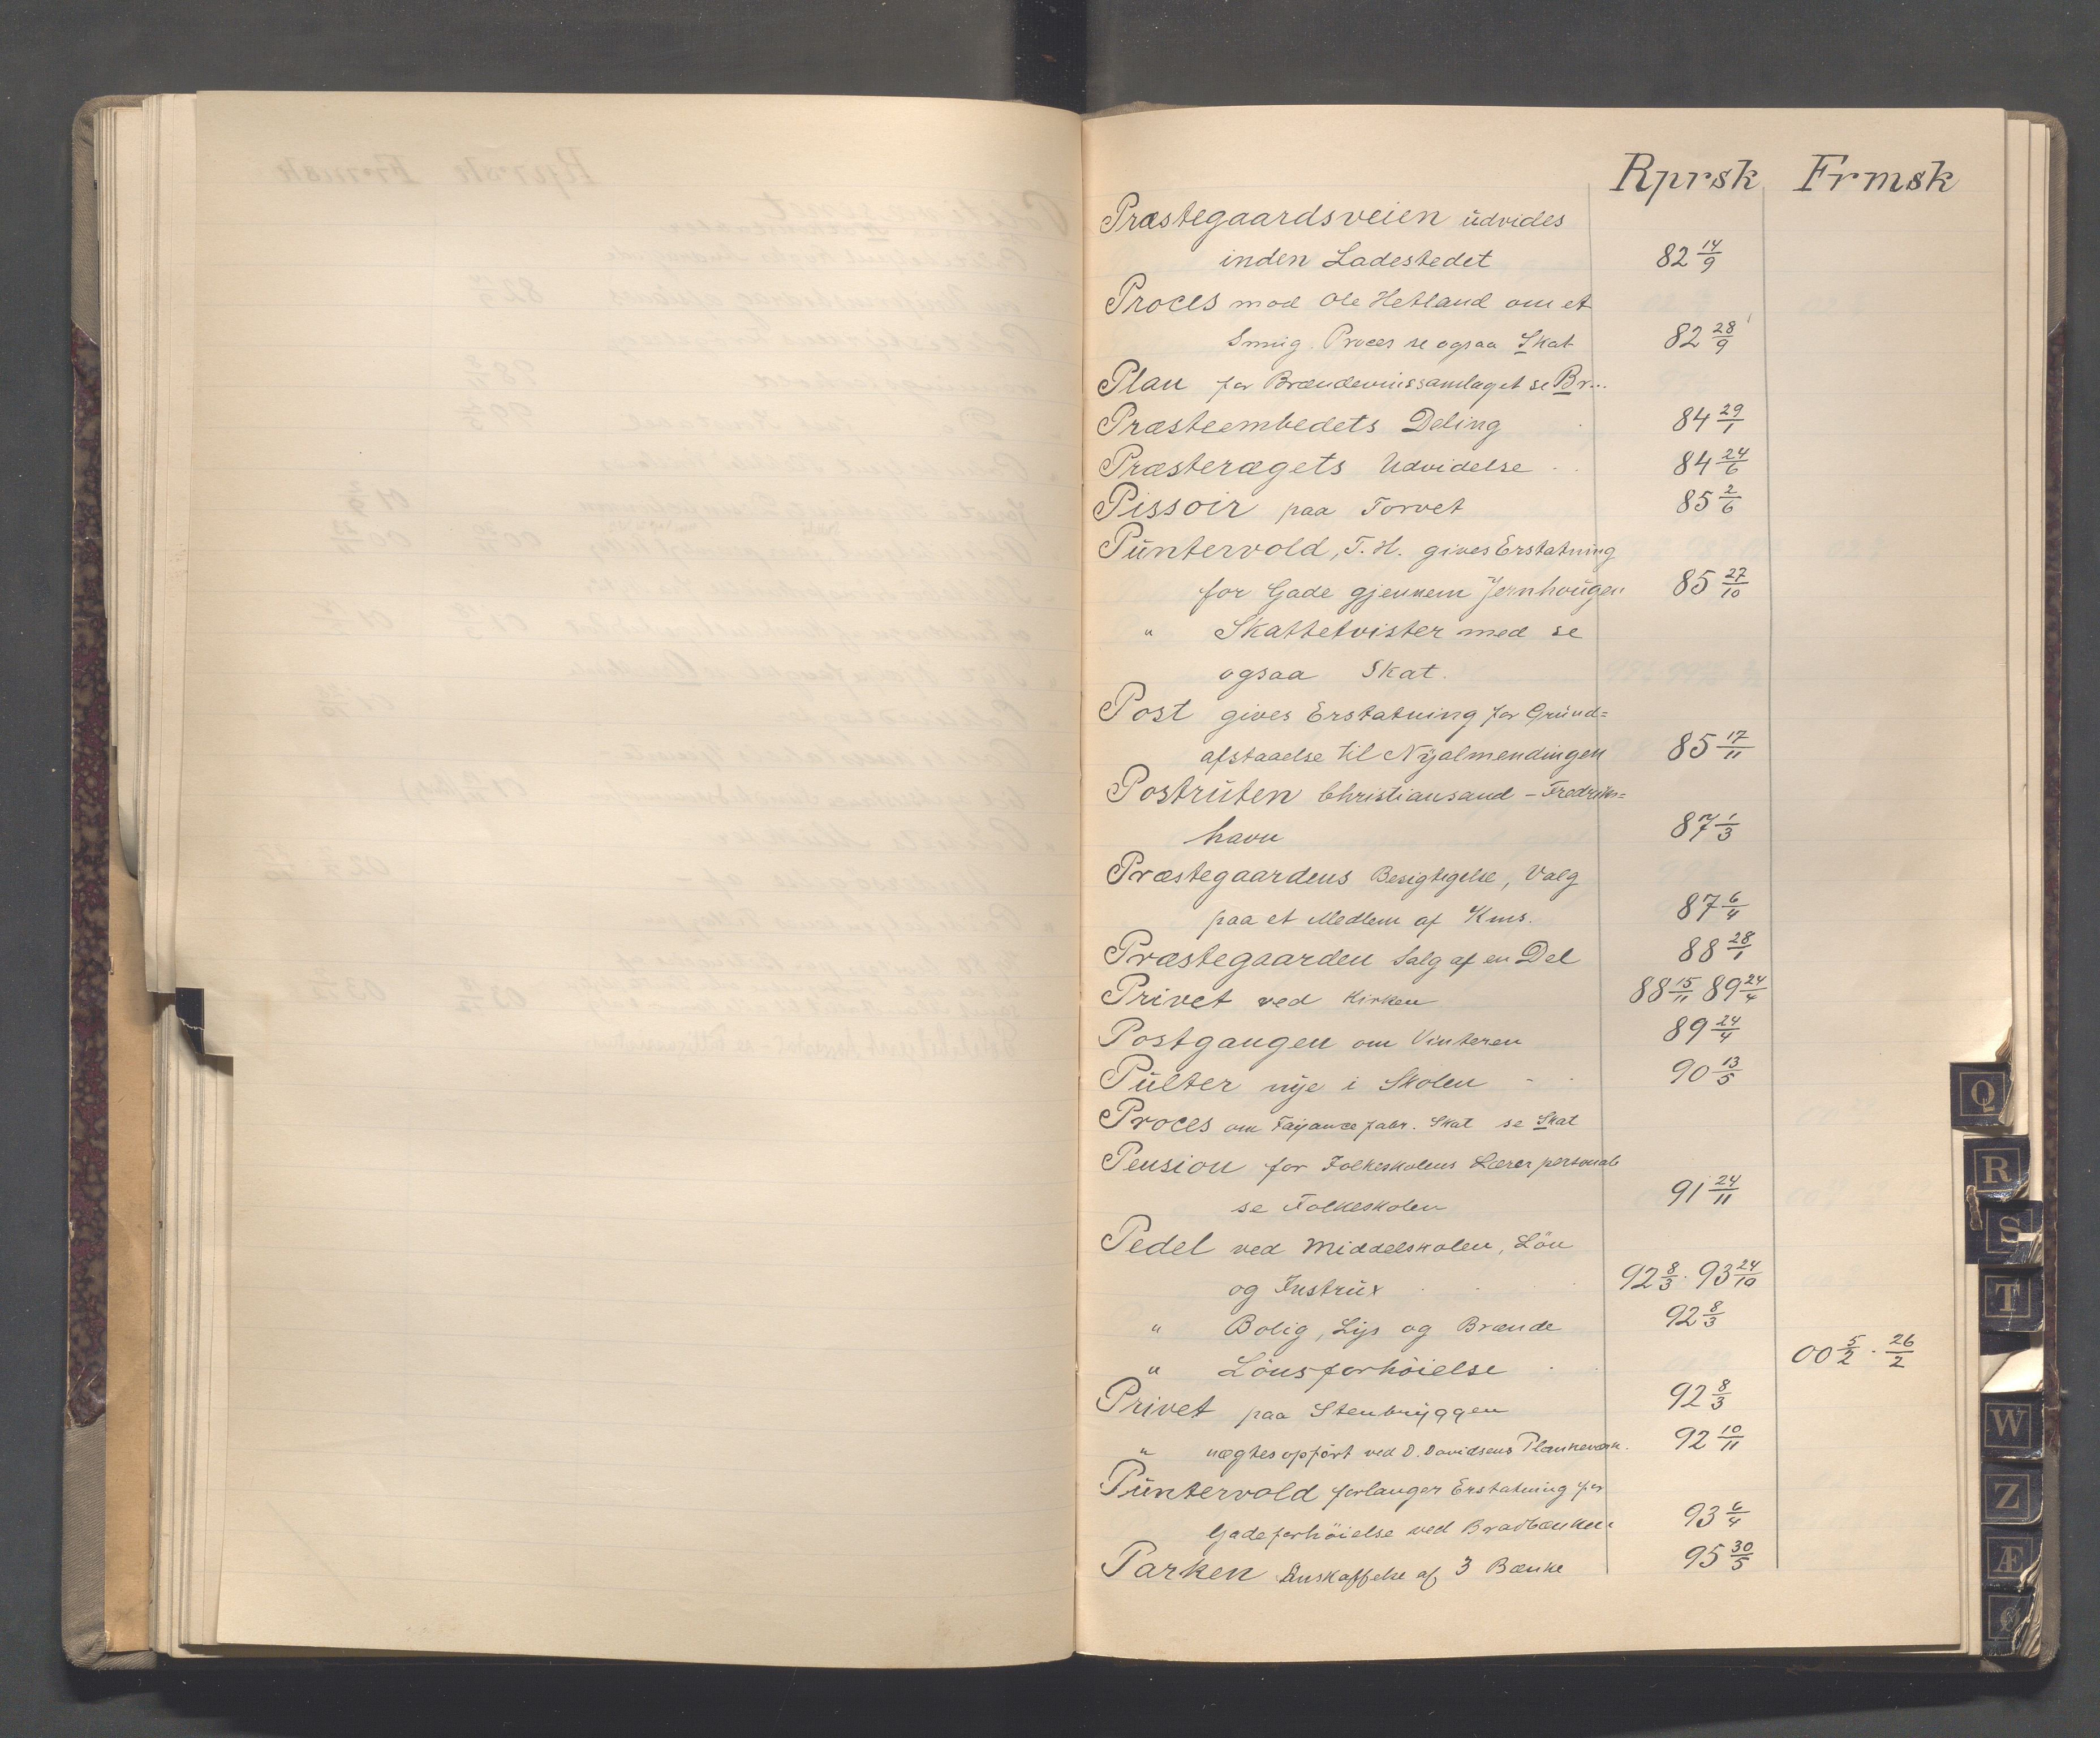 Rprsk Frmsk
Præstegaardsveien udvides
inden Ladestedet 82 14/9
Proces mod Ole Hetland om et
Smug. Proces se ogsaa Skat 82 28/9
Plan for Brændevinssamlaget se Br...
Præsteembedets Deling 84 29/1
Præsterægets Udvidelse 84 24/6
Pissoir paa Torvet 85 2/6
Püntervold, T. H. gives Erstatning
for Gade gjennem Jernhougen 85 27/10
" Skattetvister med se
ogsaa Skat.
Post gives Erstatning for Grund=
afstaaelse til Nyalmendingen 85 17/11
Postruten Christiansand - Fredriks=
havn 87 1/3
Præstegaardens Besigtigelse, Valg
paa et Medlem af Kms. 87 6/4
Præstegaarden Salg af en Del 88 28/1
Privet ved Kirken 88 15/11 89 24/4
Postgangen om Vinteren 89 24/4
Pulter nye i Skolen 90 13/5
Proces om Fayancefabr. Skat se Skat
Pension for Folkeskolens Lærerpersonale
se Folkeskolen 91 24/11
Pedel ved Middelskolen, Lön
og Instrux 92 8/3 · 93 24/10
" Bolig, Lys og Brænde 92 8/3
" Lönsforhöielse 00 5/2 · 26/2
Privet paa Stenbryggen 92 8/3
" nægtes opfört ved D. Davidsens Plankeværk. 92 10/11
Püntervold forlanger Erstatning for
Gadeforhöielse ved Bradbænken 93 6/4
Parken Anskaffelse af 3 Bænke 95 30/5
Q
R
S
T
W
Z
Æ
Ø